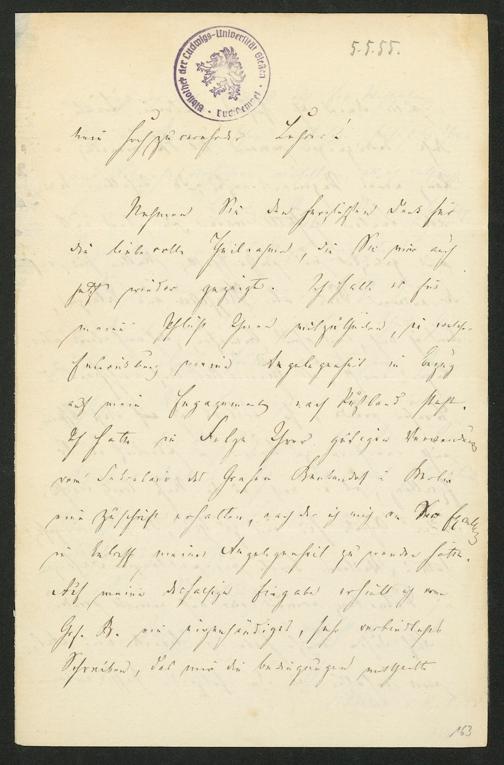 Bibliothek der Ludwigs-Universität Gießen
5.5.55.
Mein hochzuverehrender Lehrer!
Nehmen Sie den herzlichsten Dank für
die liebevolle Theilnahme, die Sie mir auch
jetzt wieder gezeigt. Ich halte es für
meine Pflicht Ihnen mitzutheilen, in welcher
meine Angelegenheit in Bezug
auf mein Engagement nach Rußland steht.
Ich hatte in Folge Ihrer gütigen Verwendung
vom Sekretair des Grafen in Berlin
eine Zuschrift erhalten, nach der ich mich an
in Betreff meiner Angelegenheit zu wenden hätte.
Auf meine deshalbige Eingabe erhielt ich vom
Grf. B. ein eigenhändiges, sehr verbindliches
Schreiben, das mir die Bedingungen mittheilte
163